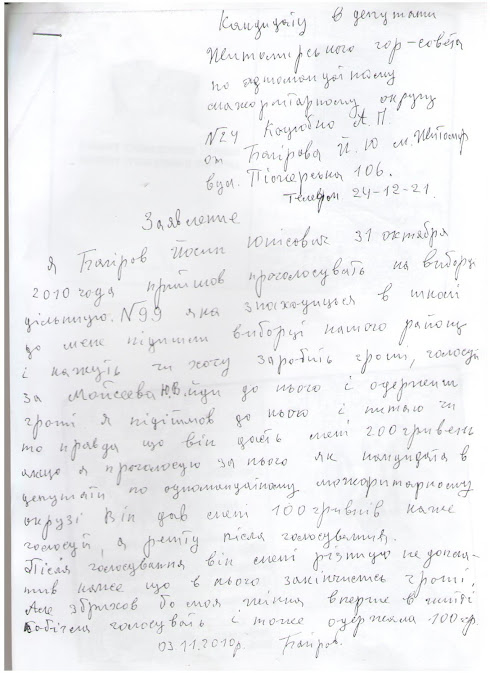 Кандидату в депутати
Житомирського гор-совета
по одномандатному
мажоритарному округу
№24 Коцюбко А.П.
от Багірова Й.Ю м. Житомир
вул. Піонерська 106.
Телефон 24-12-21.
Заявление
Я Багіров Йосип Юнісович 31 октября
2010 года прийшов проголосувать на виборчу
дільницю. №99 яка знаходиться в школі
до мене підишли виборці нашого району
і кажуть чи хочу заробить гроші, голосуй
за Мойсеева Ю.В. йди до нього і одержиш
гроші. Я підійшов до нього і питаю чи
то правда що він дасть мені 200 гривень
якщо я проголосую за нього як кандидата в
депутати по одномандатномуможоритарному
окрузі Він дав мені 100 гривнів каже
голосуй, а решту після голосування.
Після голосування він мені різницю не допла-
тив каже що в нього закінчились гроші,
Але збрихав бо моя жінка вперше в житті
голосувать і тоже одержала 100 гр.
03.11.2010р. Багіров.